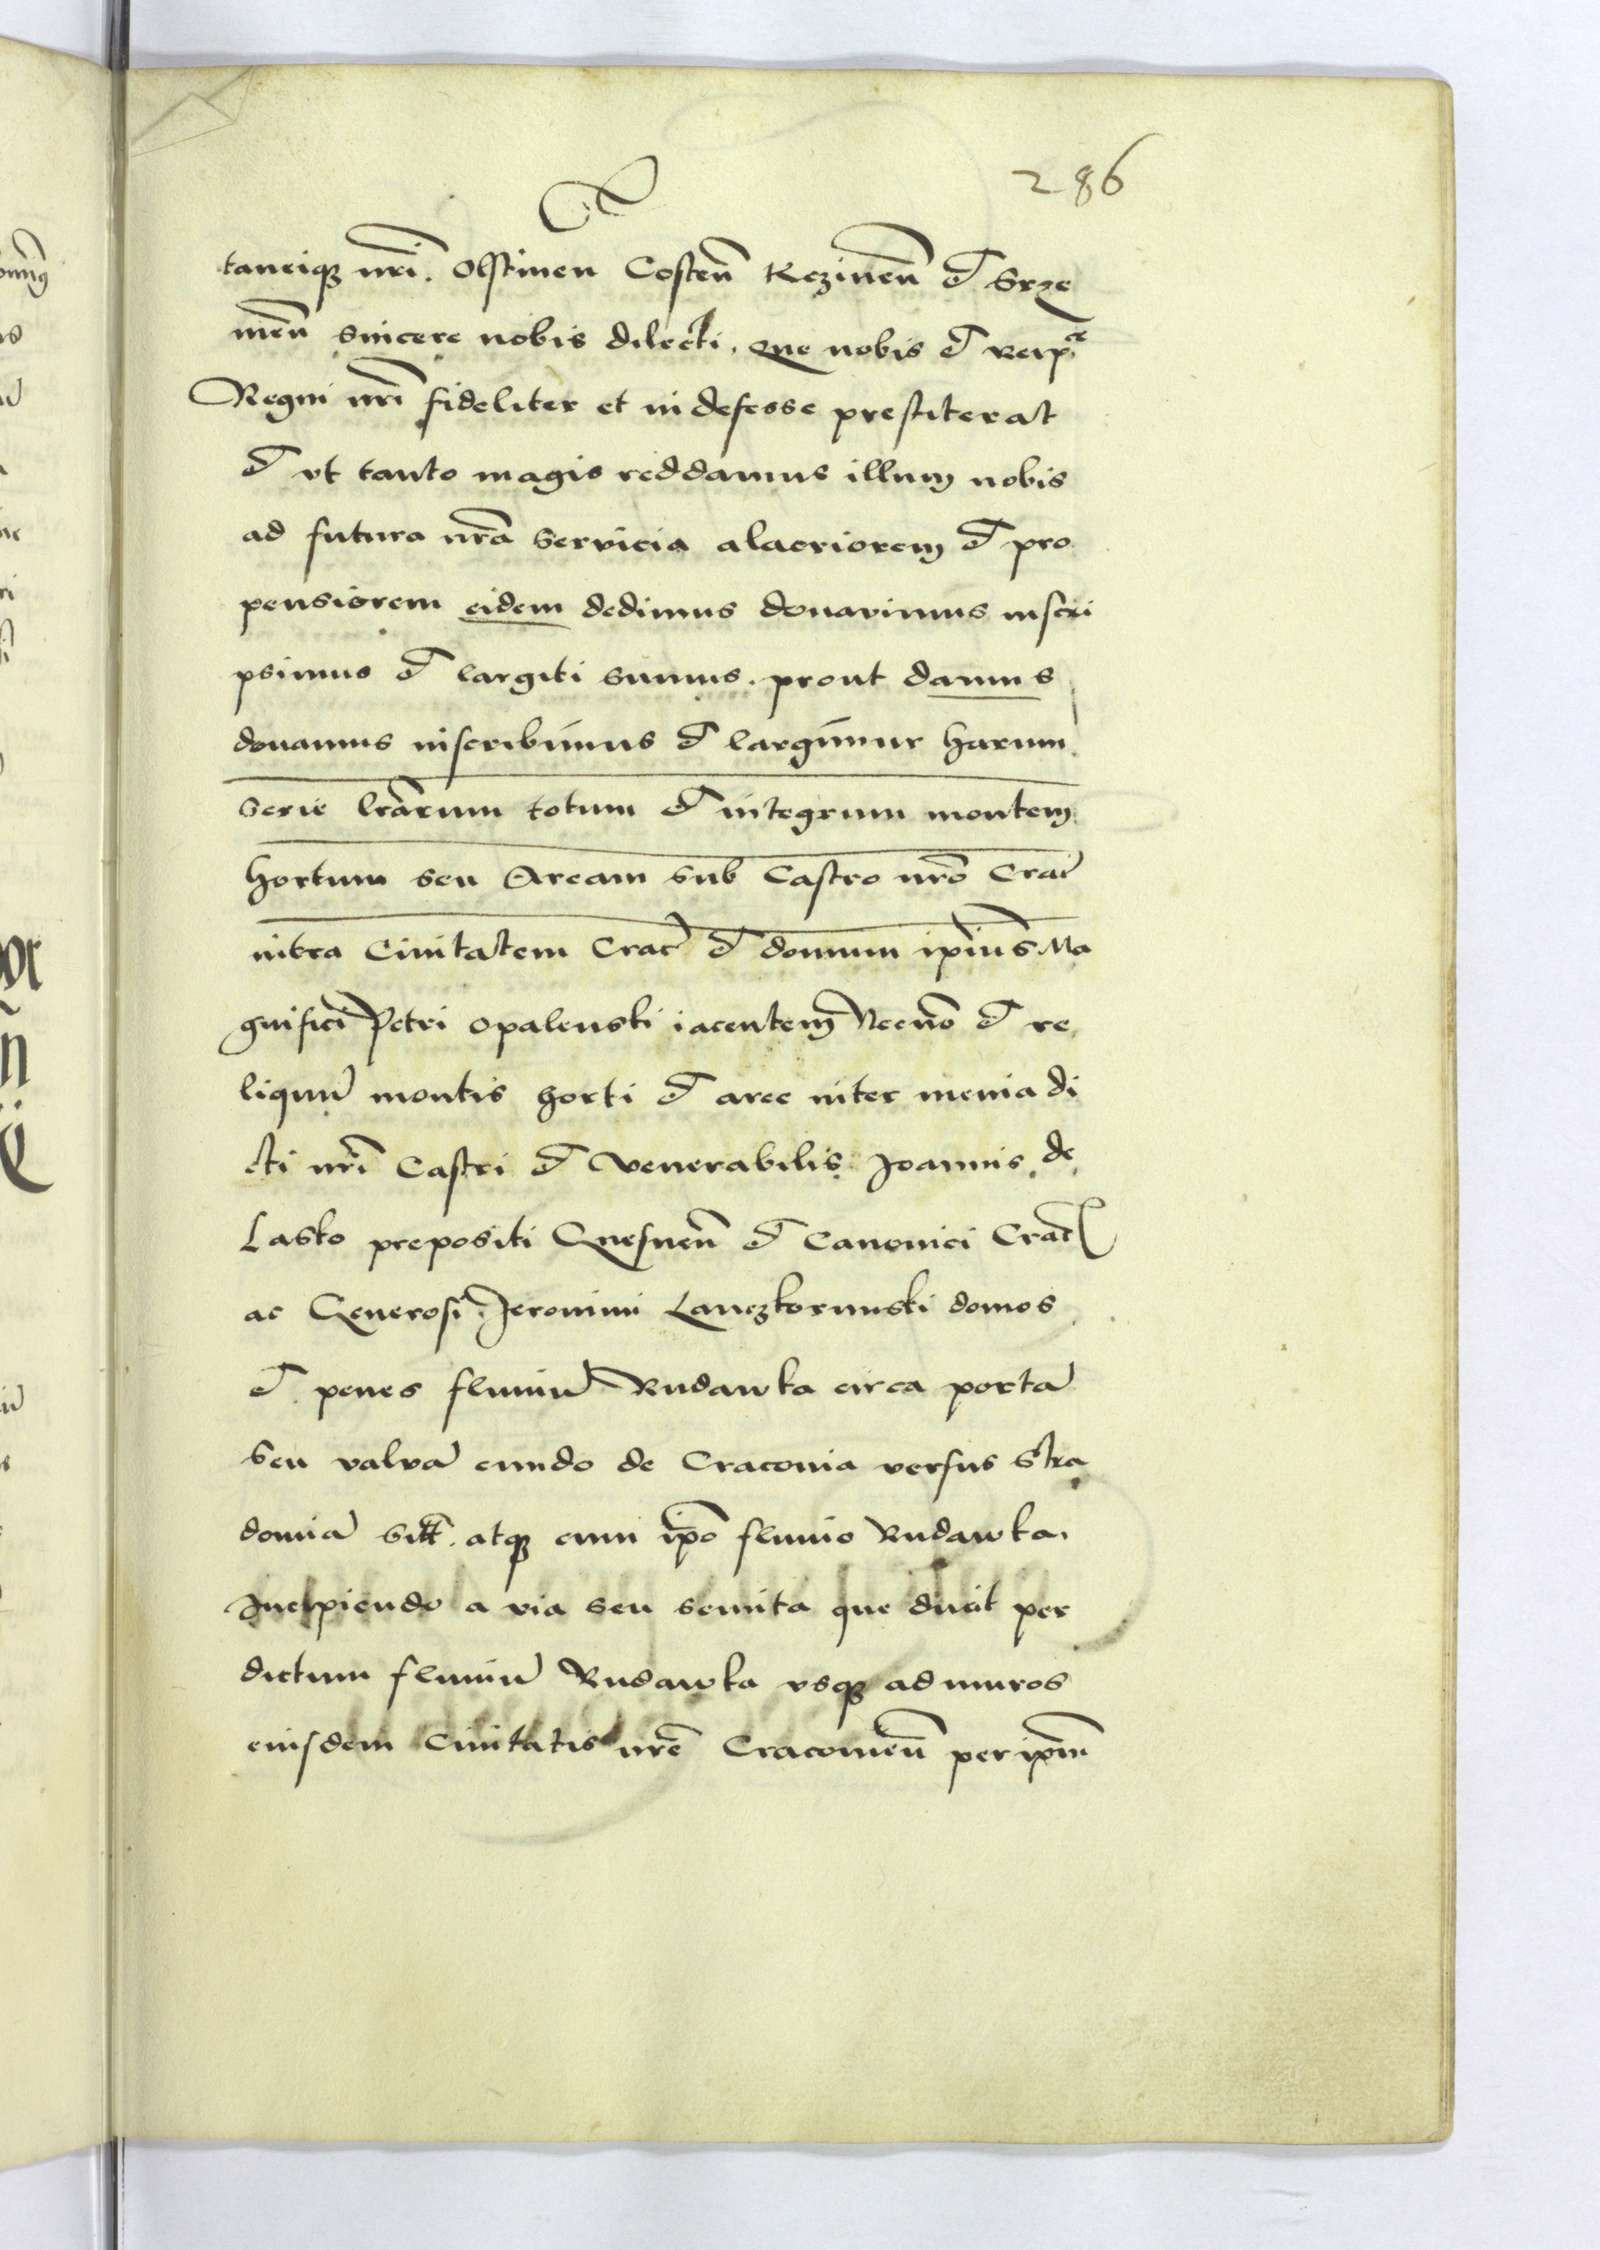 286
taneiqꝫ nr̃i. Olstinen̄ Costen̄ Kczinen̄ et Srze
men̄ sincere nobis dilecti. Que nobis et Reip̃ce
Regni nr̃i fideliter et indefesse prestiterat
et vt tanto magis reddamus illum nobis
ad futura nr̃a servicia alacriorem et pro
pensiorem eidem dedimus donavimus inscri
psimus et largiti sumus. prout damus
donamus inscribimus et largimur harum
serie lr̃arum totum et integrum montem
hortum seu Aream sub Castro nr̃o Crac̃
intra Civitatem Crac̃ et domum ip̃ius Ma
gnifici Petri Opalenski iacentem Necnõ et re
liquũ montis horti et aree inter menia di
cti nr̃i Castri et Venerabilis Joannis de
Lasko prepositi Gnesnen̄ et Canonici Crac̃
ac Generosi Jeronimi Lanczkorunski domos
et penes fluviũ Rudawka circa portã
seu valvã eundo de Cracovia versus Stra
domiã sitt. atqꝫ cum ip̃o fluvio Rudawka.
Incipiendo a via seu semita que ducit per
dictum fluviũ Rudawka vsqꝫ ad muros
eiusdem Civitatis nr̃e Cracovien̄ per ip̃m